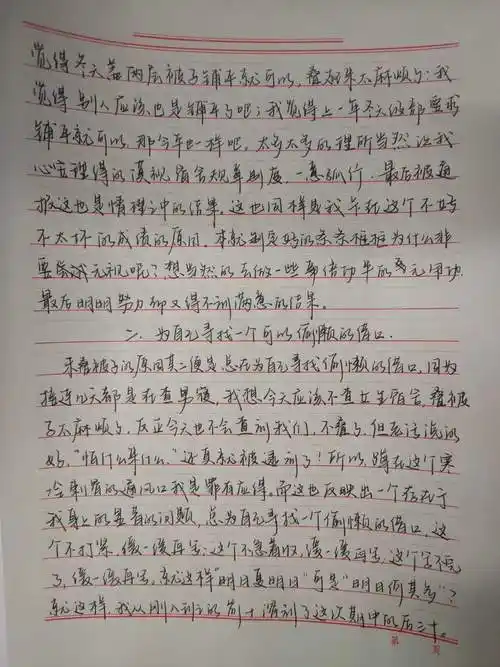 觉得冬天盖两层被子铺平就可以，叠起来太麻烦了；我
觉得别人应该也是铺平了吧；我觉得上一年冬天级部要求
铺平就可以，那今年也一样吧。太多太多的理所当然让我
心安理得的漠视宿舍规章制度，一意孤行，最后被通
报这也是情理之中的结果。这也同样是我卡在这个不好
不太坏的成绩的原因。本就制定好的条条框框为什么非
要 无视呢？想当然的去做一些事倍功半的 无用功，
最后明明努力却又得不到满意的结果。
二、为自己寻找一个可以偷懒的借口.
未叠被子的原因其二便是总在为自己寻找偷懒的借口，因为
接连几天都是在查男寝，我想今天应该不查女生宿舍，叠被
子太麻烦了，反正今天也不会查到我们，不叠了，但老话说的
好，“怕什么来什么。”还真就被逮到了！所以，蹲在这个寒
冷刺骨的通风口我是罪有应得。而这也反映出一个存在于
我身上的显著的问题，总为自己寻找一个偷懒的借口，这
个不打紧，缓一缓再写；这个不急着归，缓一缓再写，这个写不完
了，缓一缓再写，就这样“明日复明日”可是“明日何其多”？
就这样，我从刚入班的前十滑到了这次期中的后三十。
第 页